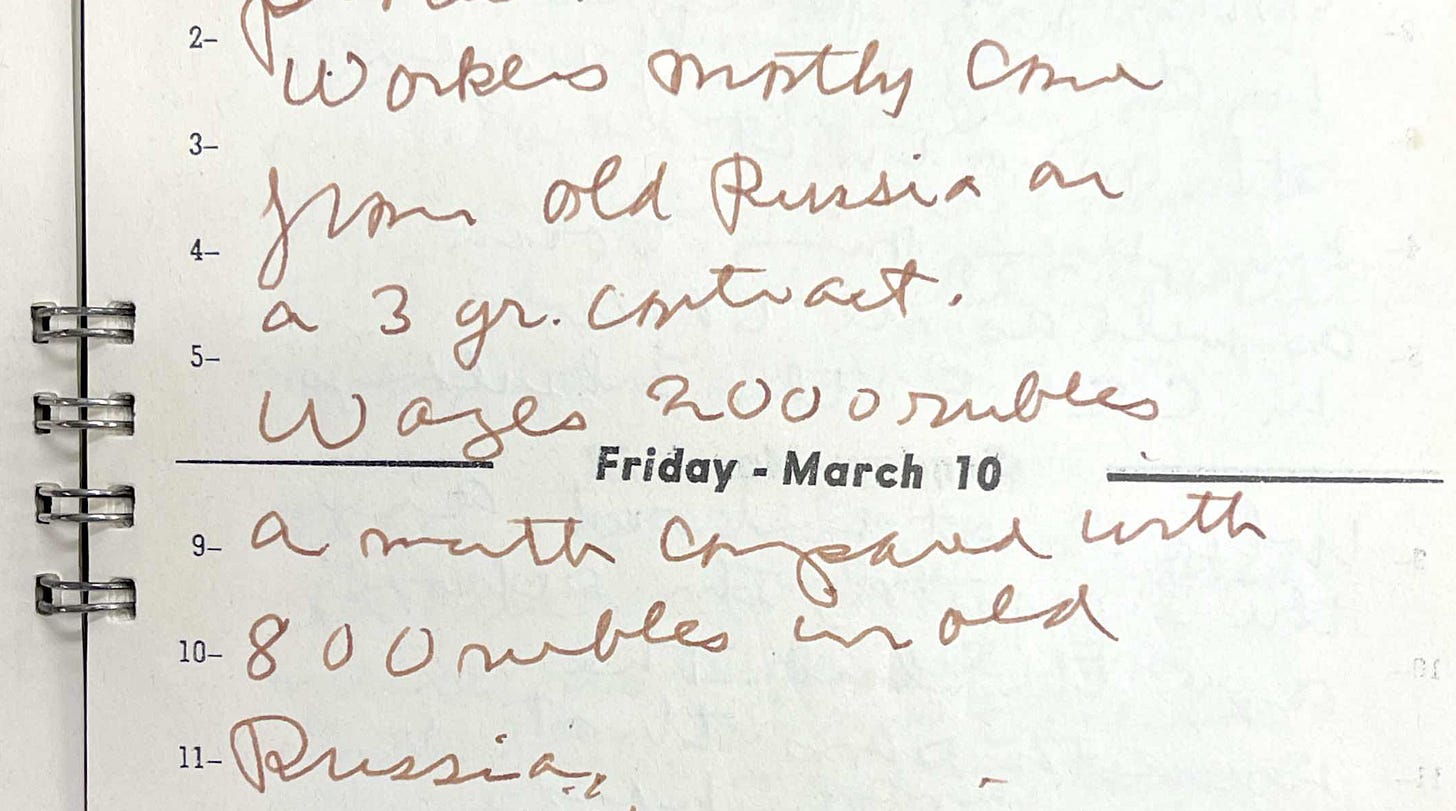 2-
Workers mostly come
3-
from old Russia on
4-
a 3 yr. contract.
5-
Wages 2000 rubles
Friday - March 10
9-
a month compared with
10-
800 rubles in old
11-
Russia.